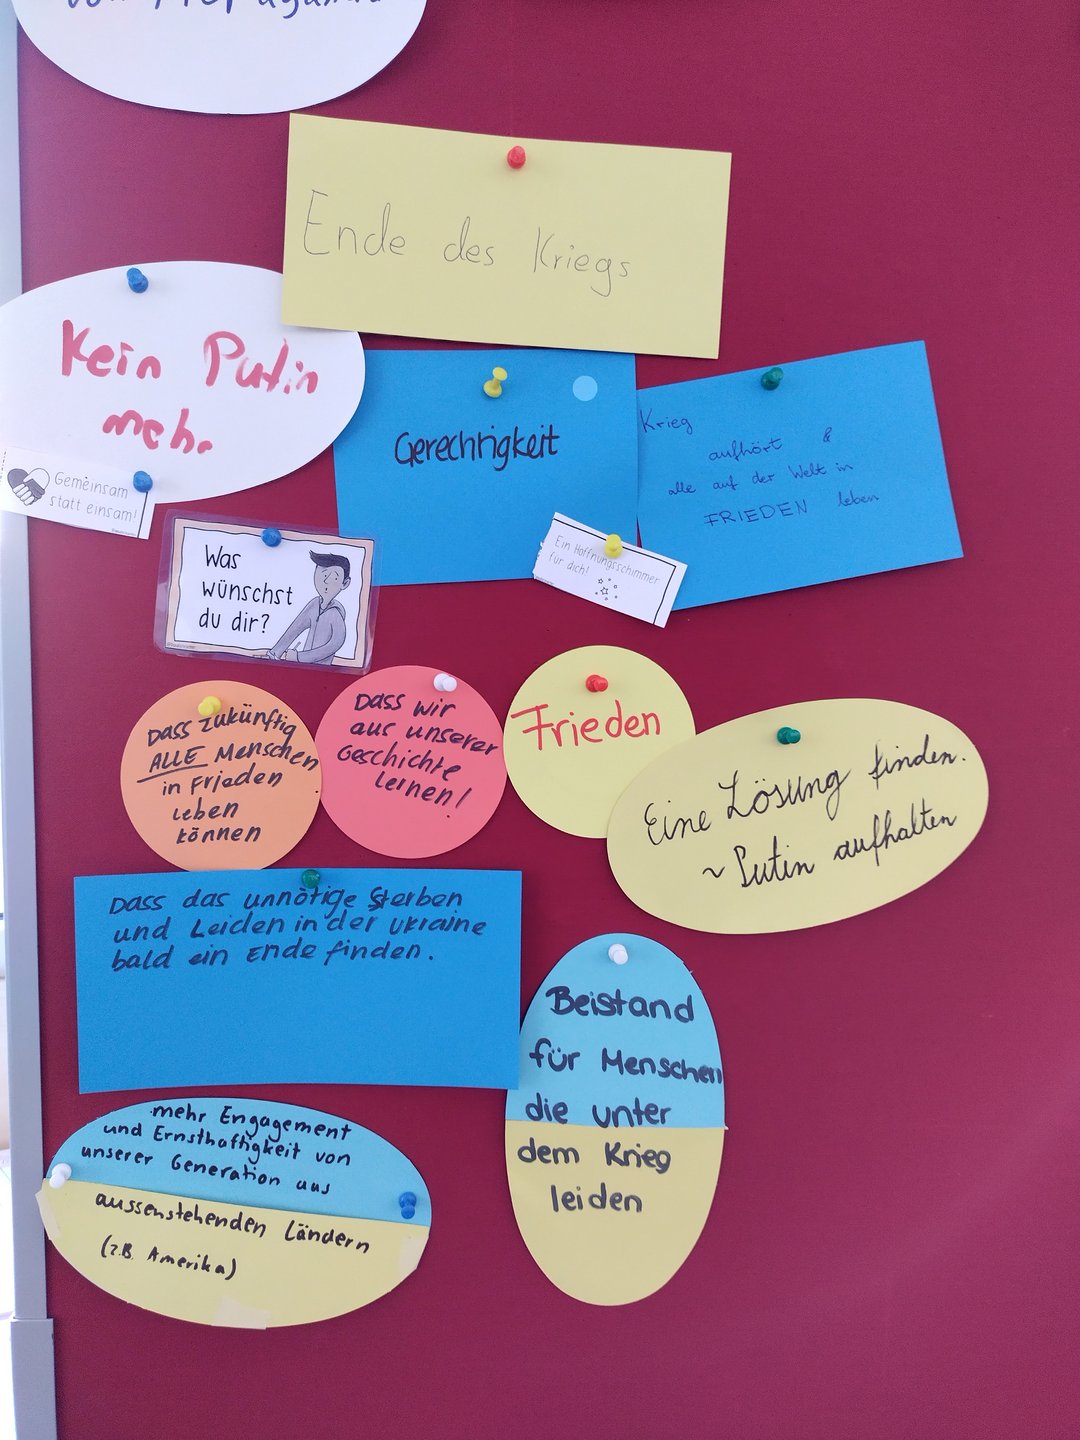 von Propaganda
Ende des Kriegs
Kein Putin
mehr
Gemeinsam
statt einsam!
Gerechtigkeit
Krieg
aufhört &
alle auf der Welt in
FRIEDEN leben
Ein Hoffnungsschimmer
für dich!
Was
wünschst
du dir?
Dass zukünftig
ALLE Menschen
in Frieden
leben
können
Dass wir
aus unserer
Geschichte
lernen!
Frieden
Eine Lösung finden.
~ Putin aufhalten
Dass das unnötige Sterben
und Leiden in der Ukraine
bald ein Ende finden.
Beistand
für Menschen
die unter
dem Krieg
leiden
mehr Engagement
und Ernsthaftigkeit von
unserer Generation aus
aussenstehenden Ländern
(z.B. Amerika)